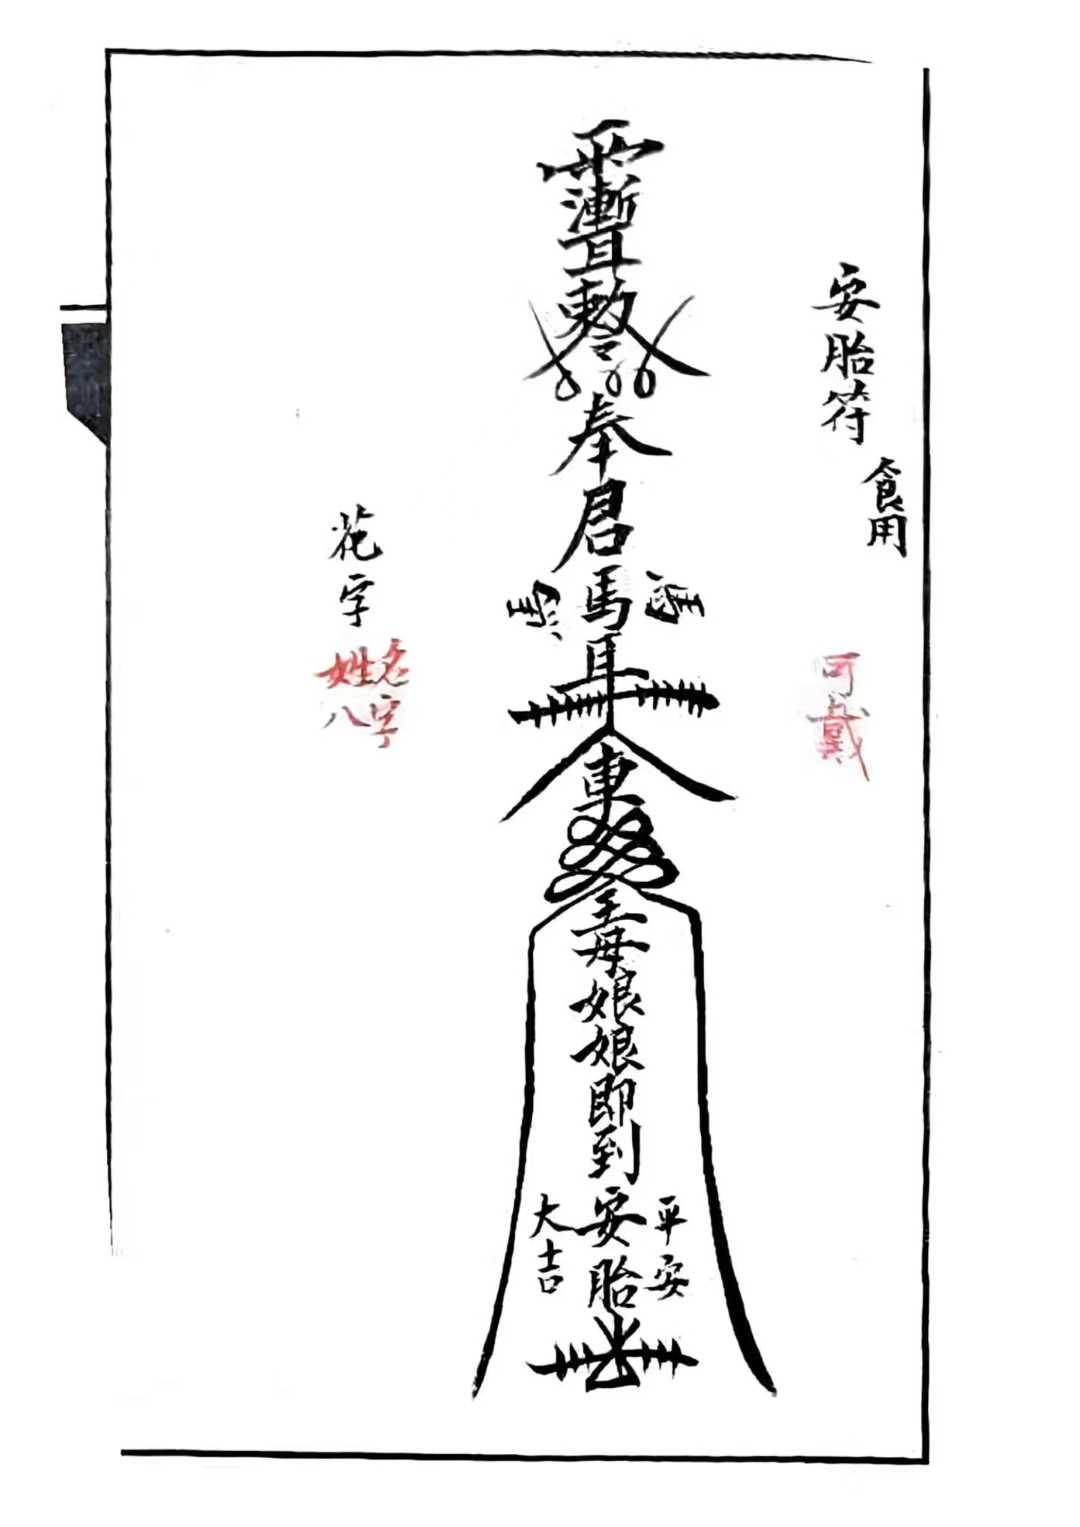 安胎符
食用
可戴
敕令
奉
君
馬
馬
耳
東
王母娘娘即到安胎
平安
大吉
花字
姓名
八字